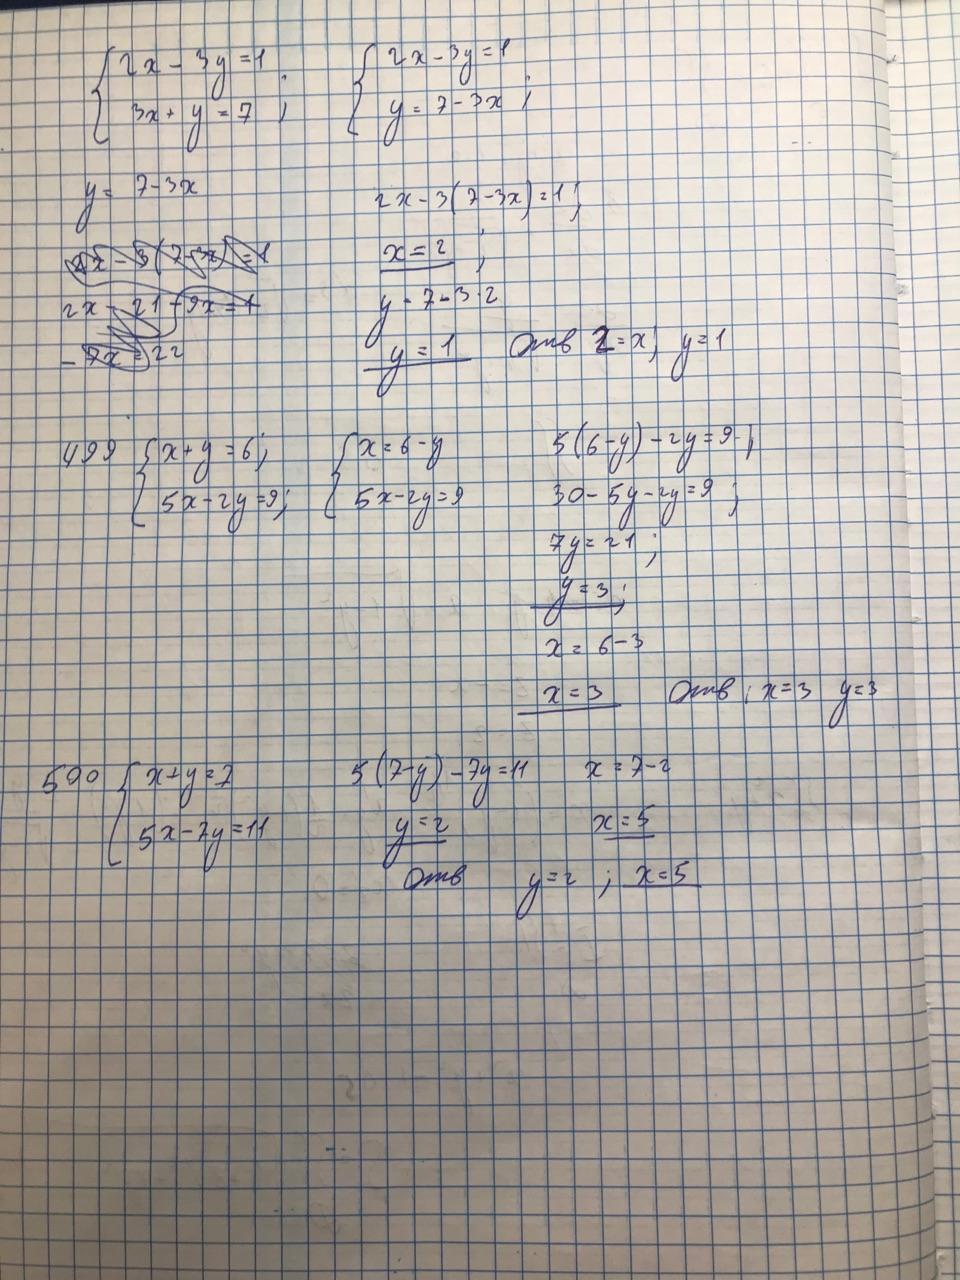 2x - 3y = 1
3x + y = 7 ;
2x - 3y = 1
y = 7 - 3x ;
y = 7 - 3x
2x - 3(7 - 3x) = 1
2x - 21 + 9x = 1
- 7x = 22
2x - 3(7 - 3x) = 1 ;
x = 2 ;
y - 7 - 3 · 2
y = 1
Отв 2 = x ; y = 1
499
x + y = 6 ;
5x - 2y = 9 ;
x = 6 - y
5x - 2y = 9
5(6 - y) - 2y = 9 ;
30 - 5y - 2y = 9 ;
7y = 21 ;
y = 3 ;
x = 6 - 3
x = 3
Отв ; x = 3 y = 3
500
x + y = 7
5x - 7y = 11
5(7 - y) - 7y = 11
y = 2
x = 7 - 2
x = 5
Отв y = 2 ; x = 5